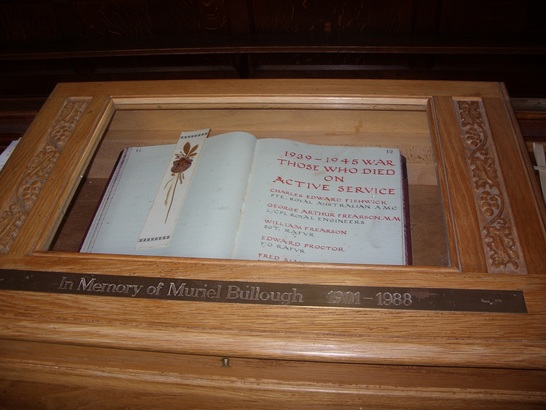 11
12
1939 – 1945 WAR
THOSE WHO DIED
ON
ACTIVE SERVICE
CHARLES EDWARD FISHWICK
PTE. ROYAL AUSTRALIAN A.M.C
GEORGE ARTHUR FREARSON. M.M
L/CPL ROYAL ENGINEERS
WILLIAM FREARSON
SGT. RAFVR
EDWARD PROCTOR
F.O RAFVR
FRED
In Memory of Muriel Bullough 1901 – 1988